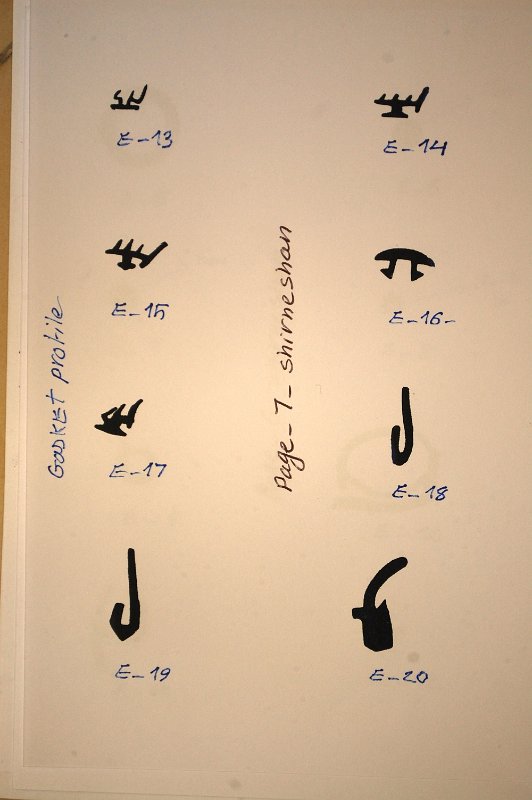 E-13
E-14
E-15
E-16-
E-17
E-18
E-19
E-20
GasKEt profile
Page-7- shirneshan